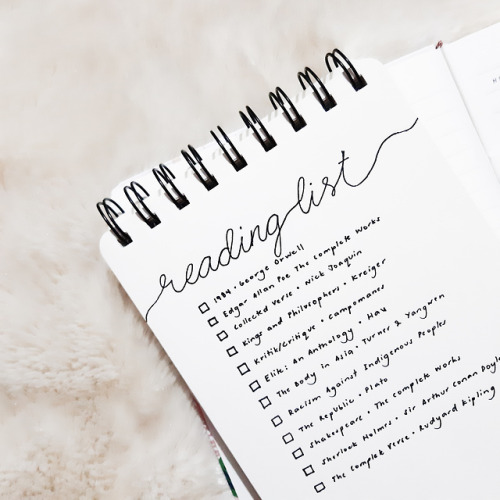 reading list
1984 • George Orwell
Edgar Allan Poe The Complete Works
Collected Verse • Nick Joaquin
Kings and Philosophers • Kreiger
Kritik/Critique • Campomanes
Elik: An Anthology • Hau
The Body in Asia • Turner & Yangwen
Racism Against Indigenous Peoples
The Republic • Plato
Shakespeare • The Complete Works
Sherlock Holmes • Sir Arthur Conan Doyle
The Complete Verse • Rudyard Kipling